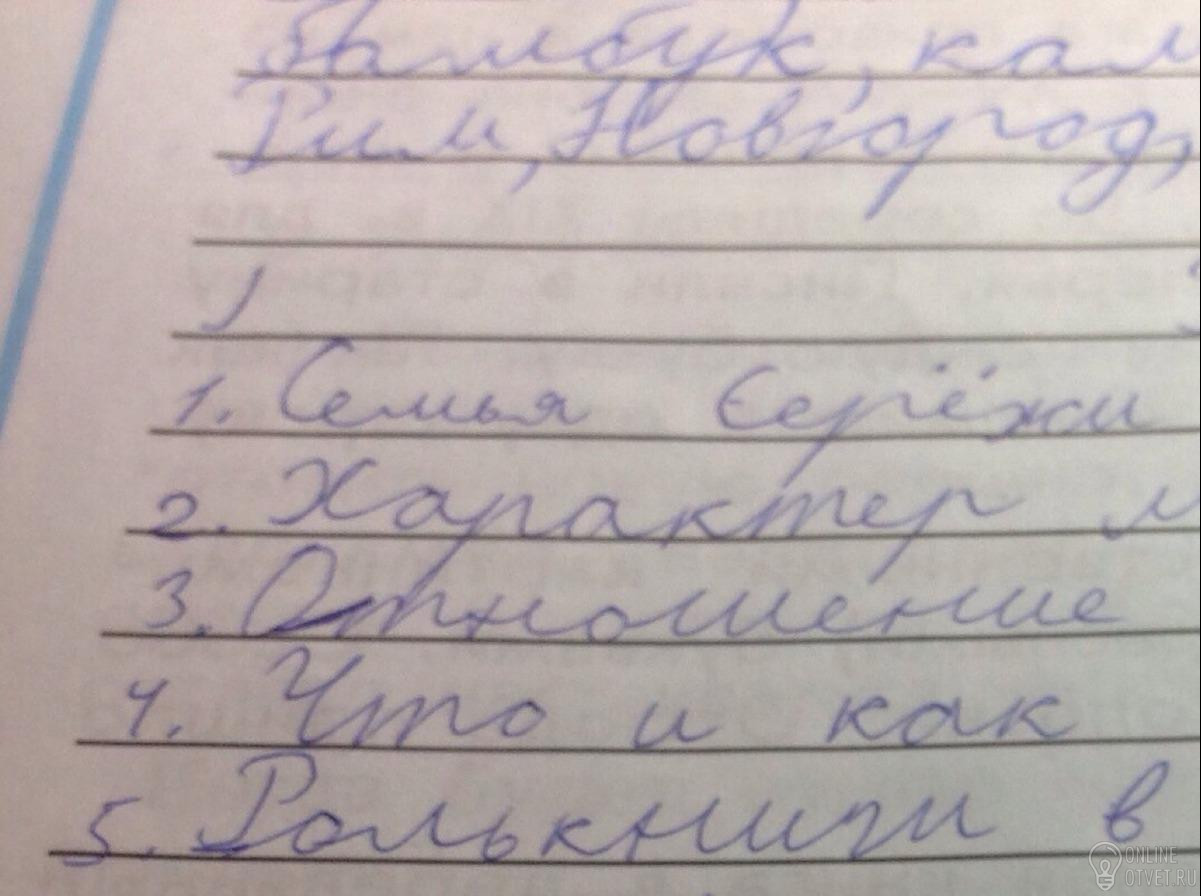 Бамбук, кам
Рим, Новгород,
1
1. Семья Серёжи
2. Характер м
3. Отношение
4. Что и как
5. Ролькниги в
ONLINE
OTVET.RU